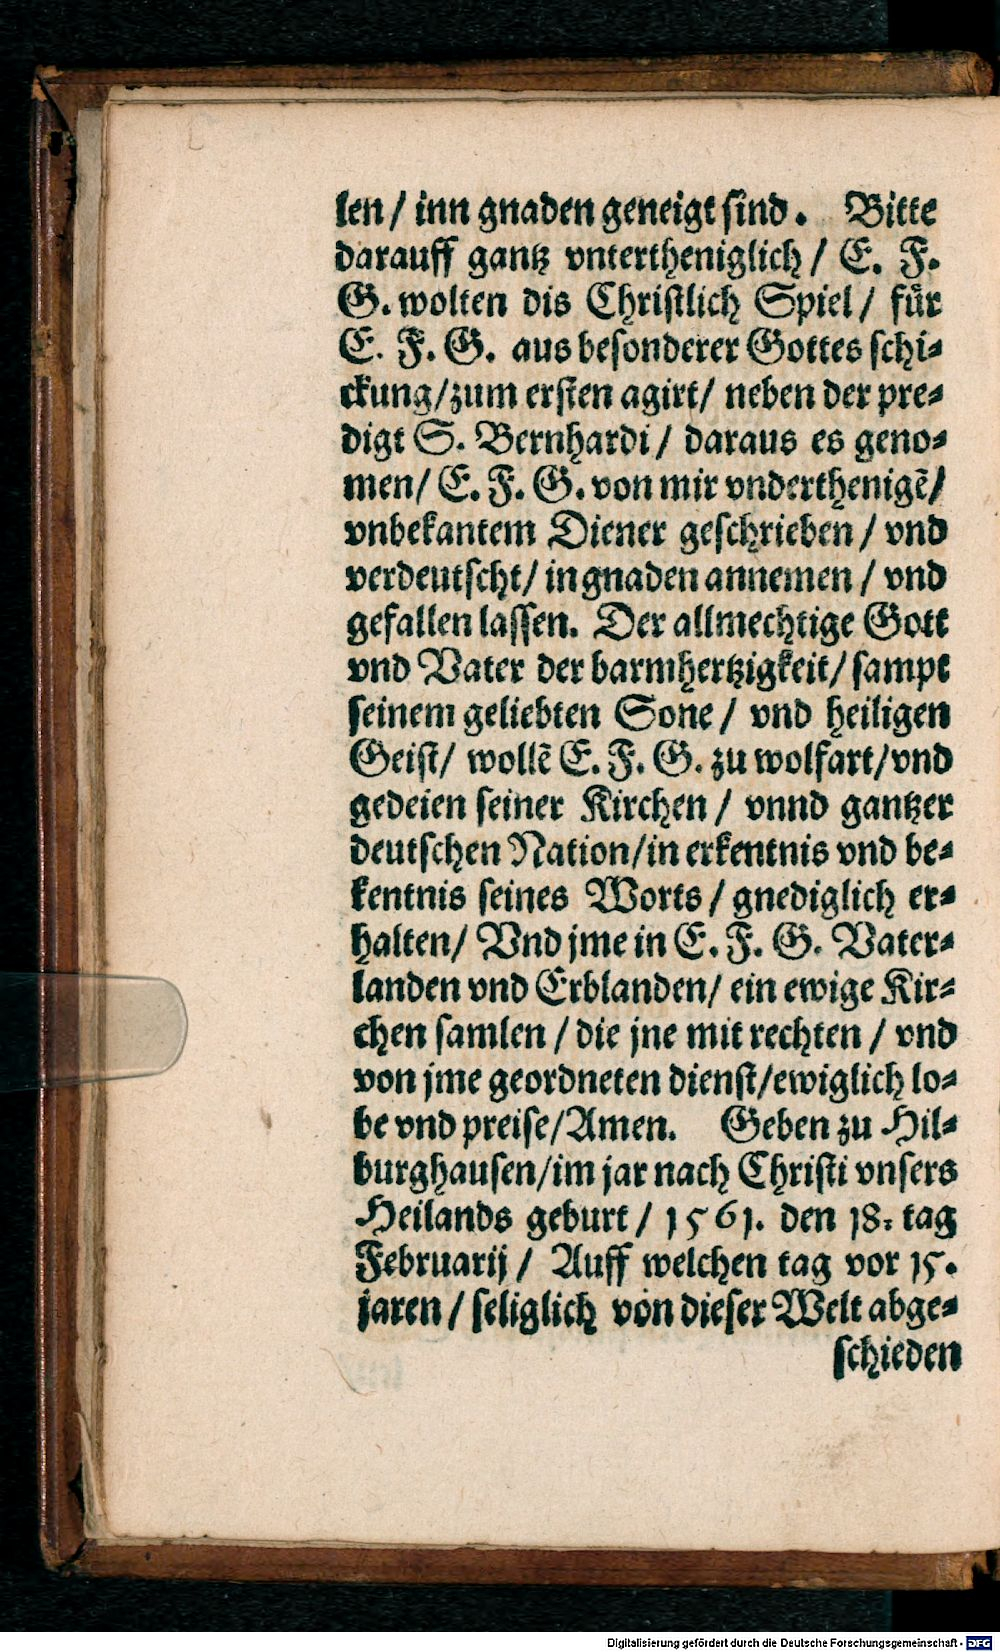 len / inn gnaden geneigt sind. Bitte
darauff gantz vntertheniglich / E. F.
G. wolten dis Christlich Spiel / für
E. F. G. aus besonderer Gottes schi-
ckung/zum ersten agirt/ neben der pre-
digt S. Bernhardi / daraus es geno-
men/ E. F. G. von mir vnderthenigē/
vnbekantem Diener geschrieben / vnd
verdeutscht/ in gnaden annemen / vnd
gefallen lassen. Der allmechtige Gott
vnd Vater der barmhertzigkeit/ sampt
seinem geliebten Sone / vnd heiligen
Geist/ wollē E. F. G. zu wolfart/vnd
gedeien seiner Kirchen / vnnd gantzer
deutschen Nation/in erkentnis vnd be-
kentnis seines Worts / gnediglich er-
halten/ Vnd jme in E. F. G. Vater-
landen vnd Erblanden/ ein ewige Kir-
chen samlen / die jne mit rechten / vnd
von jme geordneten dienst/ewiglich lo-
be vnd preise/Amen. Geben zu Hil-
burghausen/im jar nach Christi vnsers
Heilands geburt / 1561. den 18. tag
Februarij / Auff welchen tag vor 15.
jaren / seliglich von dieser Welt abge-
schieden
Digitalisierung gefördert durch die Deutsche Forschungsgemeinschaft - DFG